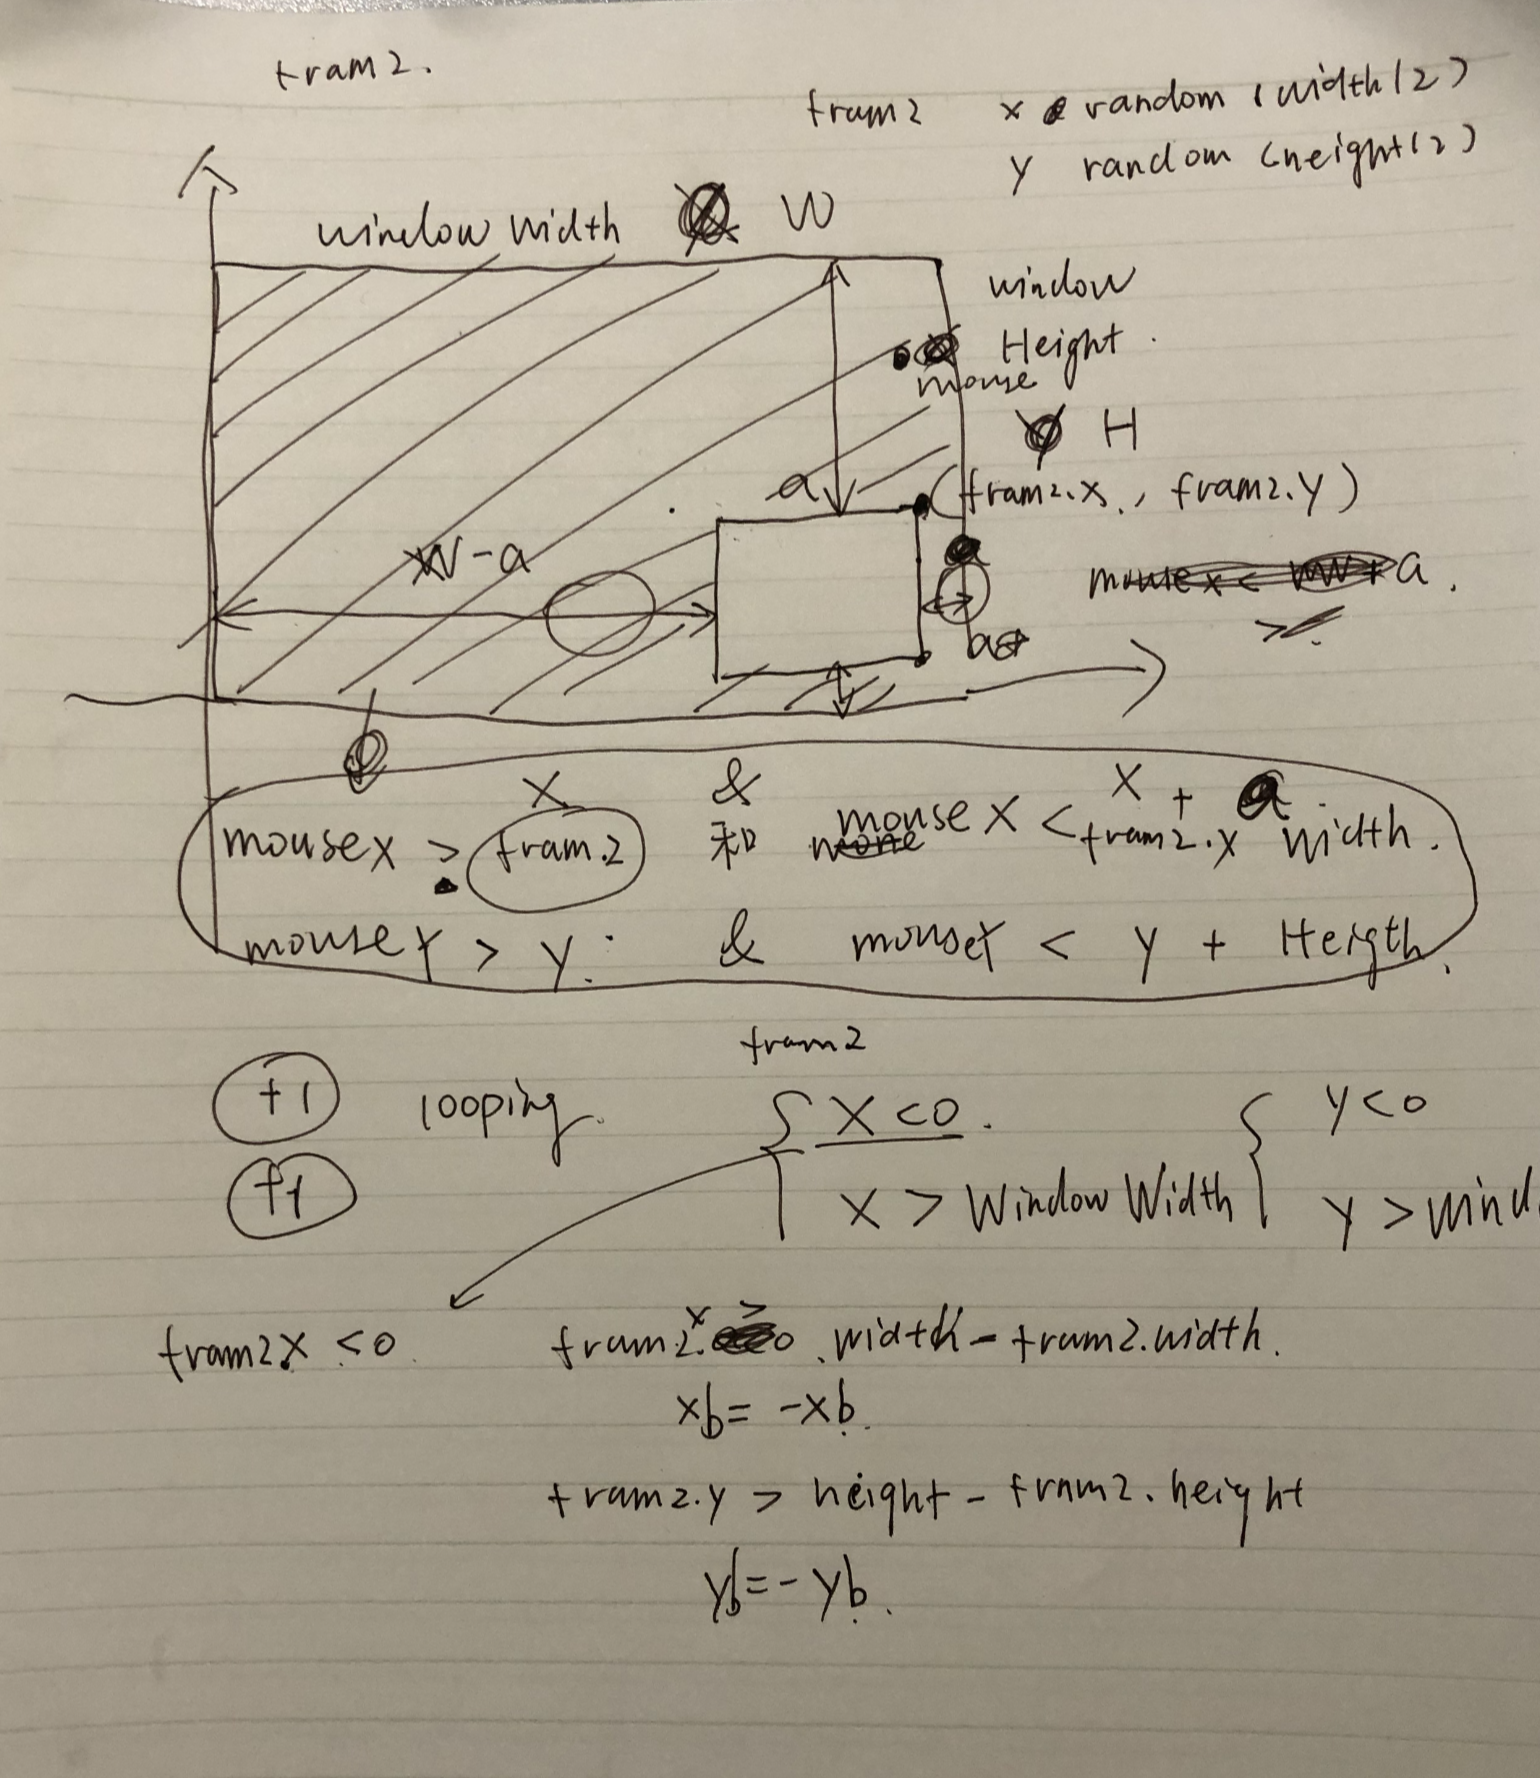 fram2.
fram2 x random (width/2)
y random (height/2)
window width W
window
Height.
mouse
H
a (fram2.x, fram2.y)
W-a
a.
a
x & x + a
mousex > fram.2 和 mouse x < fram2.x width.
mouseY > y. & mouseY < y + Heigth.
fram2
+1 looping. { x<0. { y<0
+1 x > Window Width y > wind
fram2x <0. fram2.x > width - fram2.width.
xb = -xb.
fram2.y > height - fram2.height
yb = -yb.